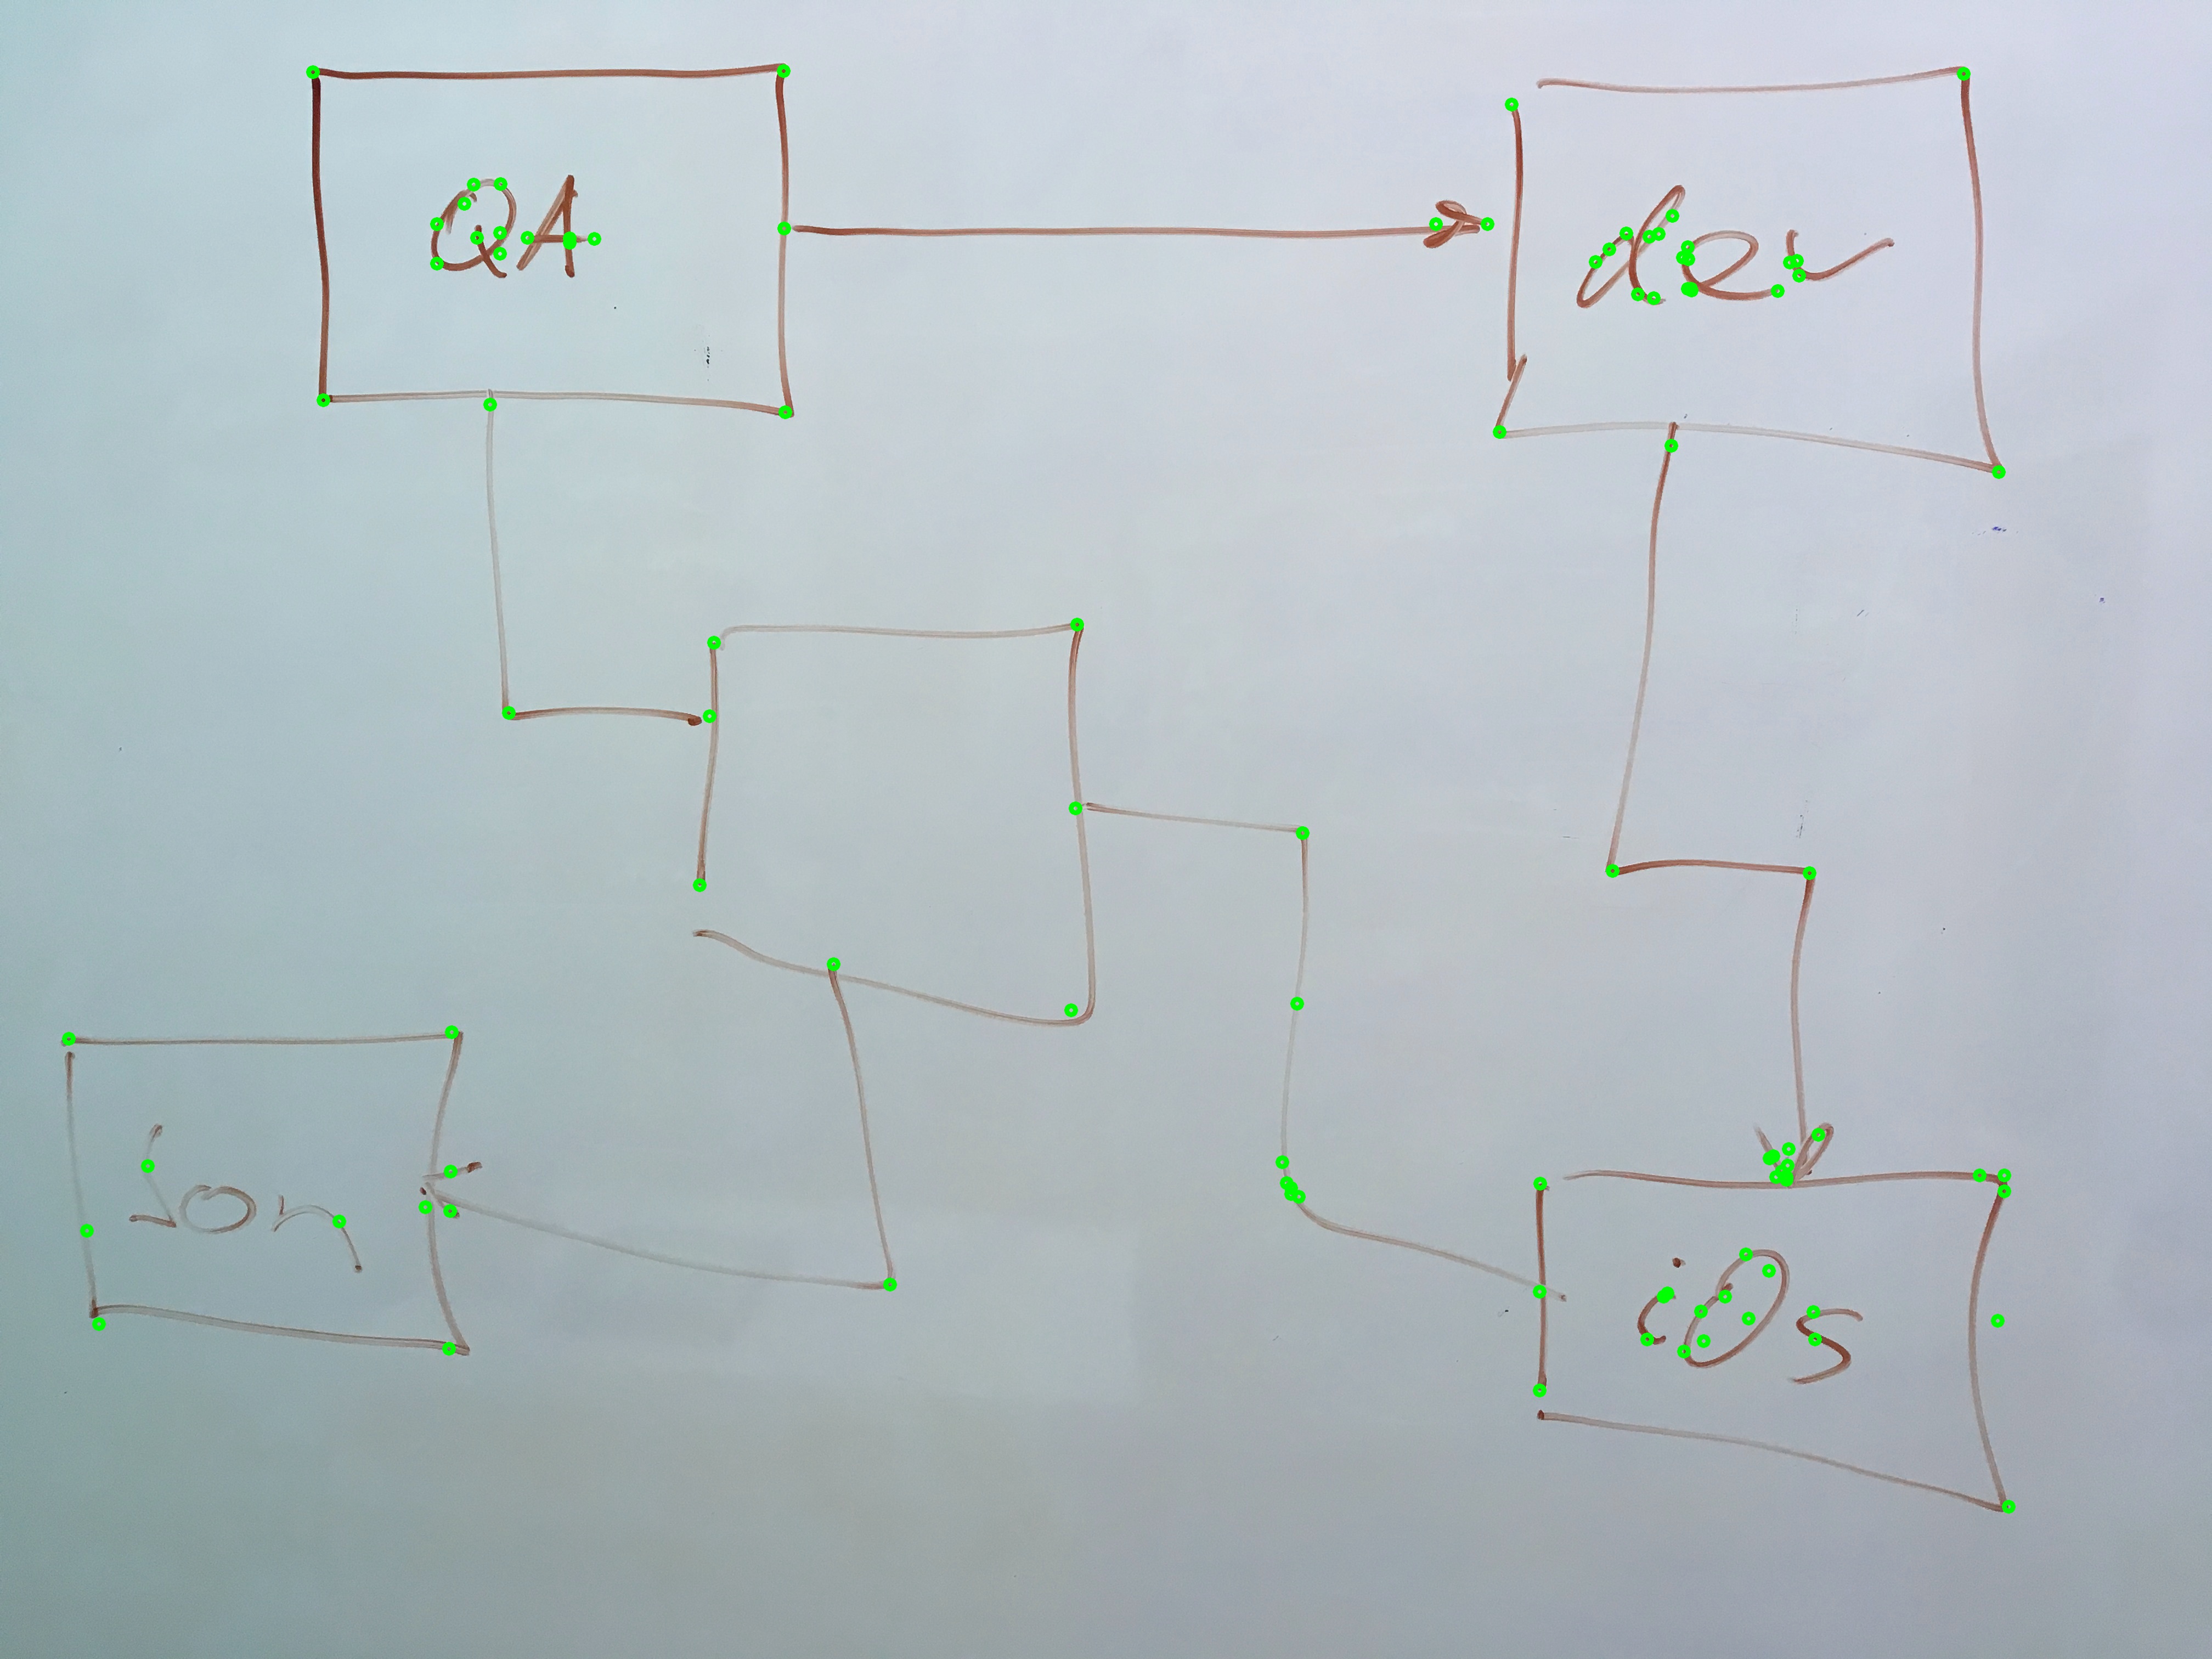 QA
dev
son
iOs